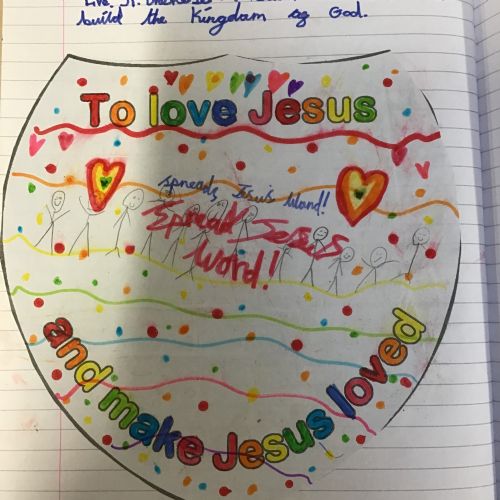 build the Kingdom of God.
To love Jesus
spreads Jesus's Word!
Spread Jesus
Word!
and make Jesus loved